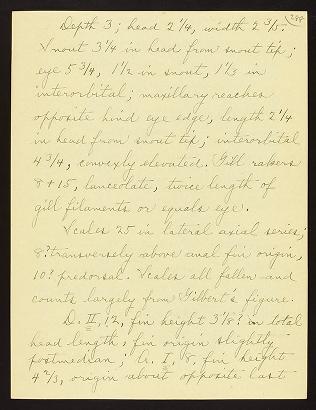 288
Depth 3; head 2 1/4, width 2 3/5.
Snout 3 1/4 in head from snout tip;
eye 5 3/4, 1 1/2 in snout, 1 1/3 in
interorbital; maxillary reaches
opposite hind eye edge, length 2 1/4
in head from snout tip; interorbital
4 3/4, convexly elevated. Gill rakers
8 + 15, lanceolate, twice length of
gill filaments or equals eye.
Scales 25 in lateral axial series;
8? transversely above anal fin origin,
10? predorsal. Scales all fallen and
counts largely from Gilbert's figure.
D. II, 12, fin height 3 1/8? in total
head length, fin origin slightly
postmedian; A. I, 8, fin height
4 2/3, origin about opposite last